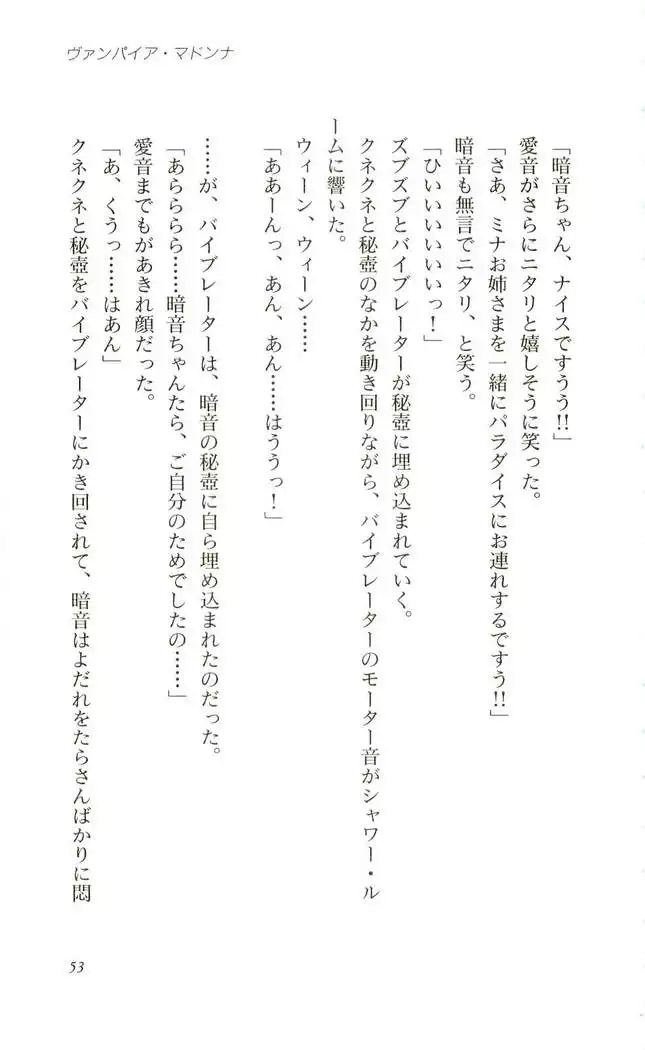 ヴァンパイア・マドンナ
「暗音ちゃん、ナイスですうう!!」
愛音がさらにニタリと嬉しそうに笑った。
「さあ、ミナお姉さまを一緒にパラダイスにお連れするですう!!」
暗音も無言でニタリ、と笑う。
「ひいいいいいいっ！」
ズブズブとバイブレーターが秘壺に埋め込まれていく。
クネクネと秘壺のなかを動き回りながら、バイブレーターのモーター音がシャワー・ル
ームに響いた。
ウィーン、ウィーン……
「ああーんっ、あん、あん……はううっ！」
……が、バイブレーターは、暗音の秘壺に自ら埋め込まれたのだった。
「あらららら……暗音ちゃんたら、ご自分のためでしたの……」
愛音までもがあきれ顔だった。
「あ、くうっ……はあん」
クネクネと秘壺をバイブレーターにかき回されて、暗音はよだれをたらさんばかりに悶
53